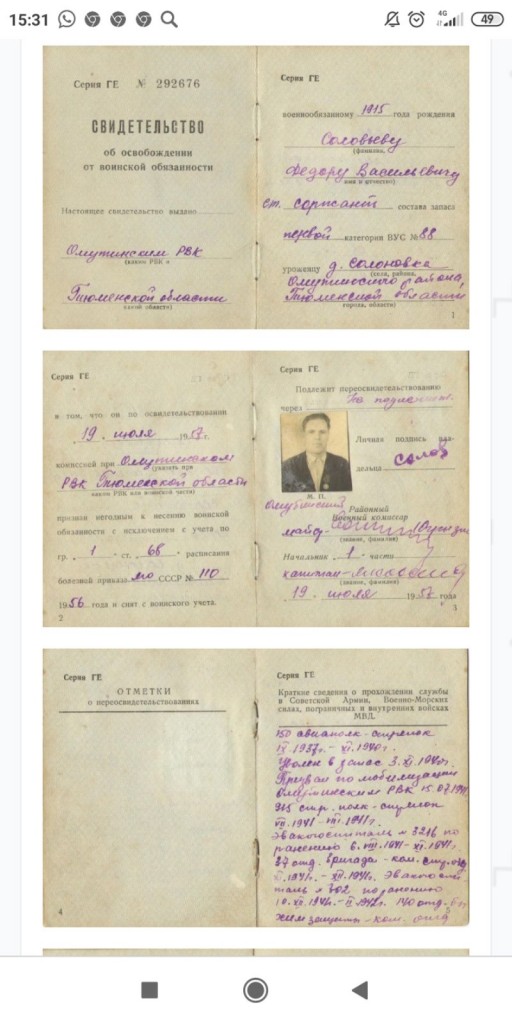 15:31
4G
49
Серия ГЕ № 292676
СВИДЕТЕЛЬСТВО
об освобождении
от воинской обязанности
Настоящее свидетельство выдано
Омутинским РВК
(каким РВК и
Тюменской области
какой области)
Серия ГЕ
военнообязанному 1915 года рождения
Соловьеву
(фамилия,
Федору Васильевичу
имя и отчество)
ст. сержант состава запаса
первой категории ВУС № 88
уроженцу д. Солоновка
(села, района,
Омутинского района,
Тюменской области
города, области)
1
Серия ГЕ
в том, что он по освидетельствовании
19 июля 1957г.
комиссией при Омутинском
(указать при
РВК Тюменской области
каком РВК или воинской части)
признан негодным к несению воинской
обязанности с исключением с учета по
гр. 1 ст. 66 расписания
болезней приказа МО СССР № 110
1956 года и снят с воинского учета.
2
Серия ГЕ
Подлежит переосвидетельствованию
через Не подлежит.
Личная подпись вла-
дельца Солов
М. П.
Омутинский Районный
Военный комиссар
майор
(звание, фамилия)
Начальник 1 части
капитан
(звание, фамилия)
19 июля 1957 года
3
Серия ГЕ
ОТМЕТКИ
о переосвидетельствованиях
4
Серия ГЕ
Краткие сведения о прохождении службы
в Советской Армии, Военно-Морских
силах, пограничных и внутренних войсках
МВД.
150 авиаполк - стрелок
IX.1937г. - XI.1940г.
Уволен в запас 3.XI.1940г.
Призван по мобилизации
Омутинским РВК 15.07.1941
стр. полк - стрелок
VII.1941 - VIII.1941г.
Эвакогоспиталь № 3216 по
ранению 6.VIII.1941 - XI.1941г.
37 отд. бригада - ком.
XI.1941г. - XII.1941г. Эвакогоспи-
таль № 302 по ранению
10.XII.1941г. - II.1942г. 140 отд.
хим защиты - ком. отд